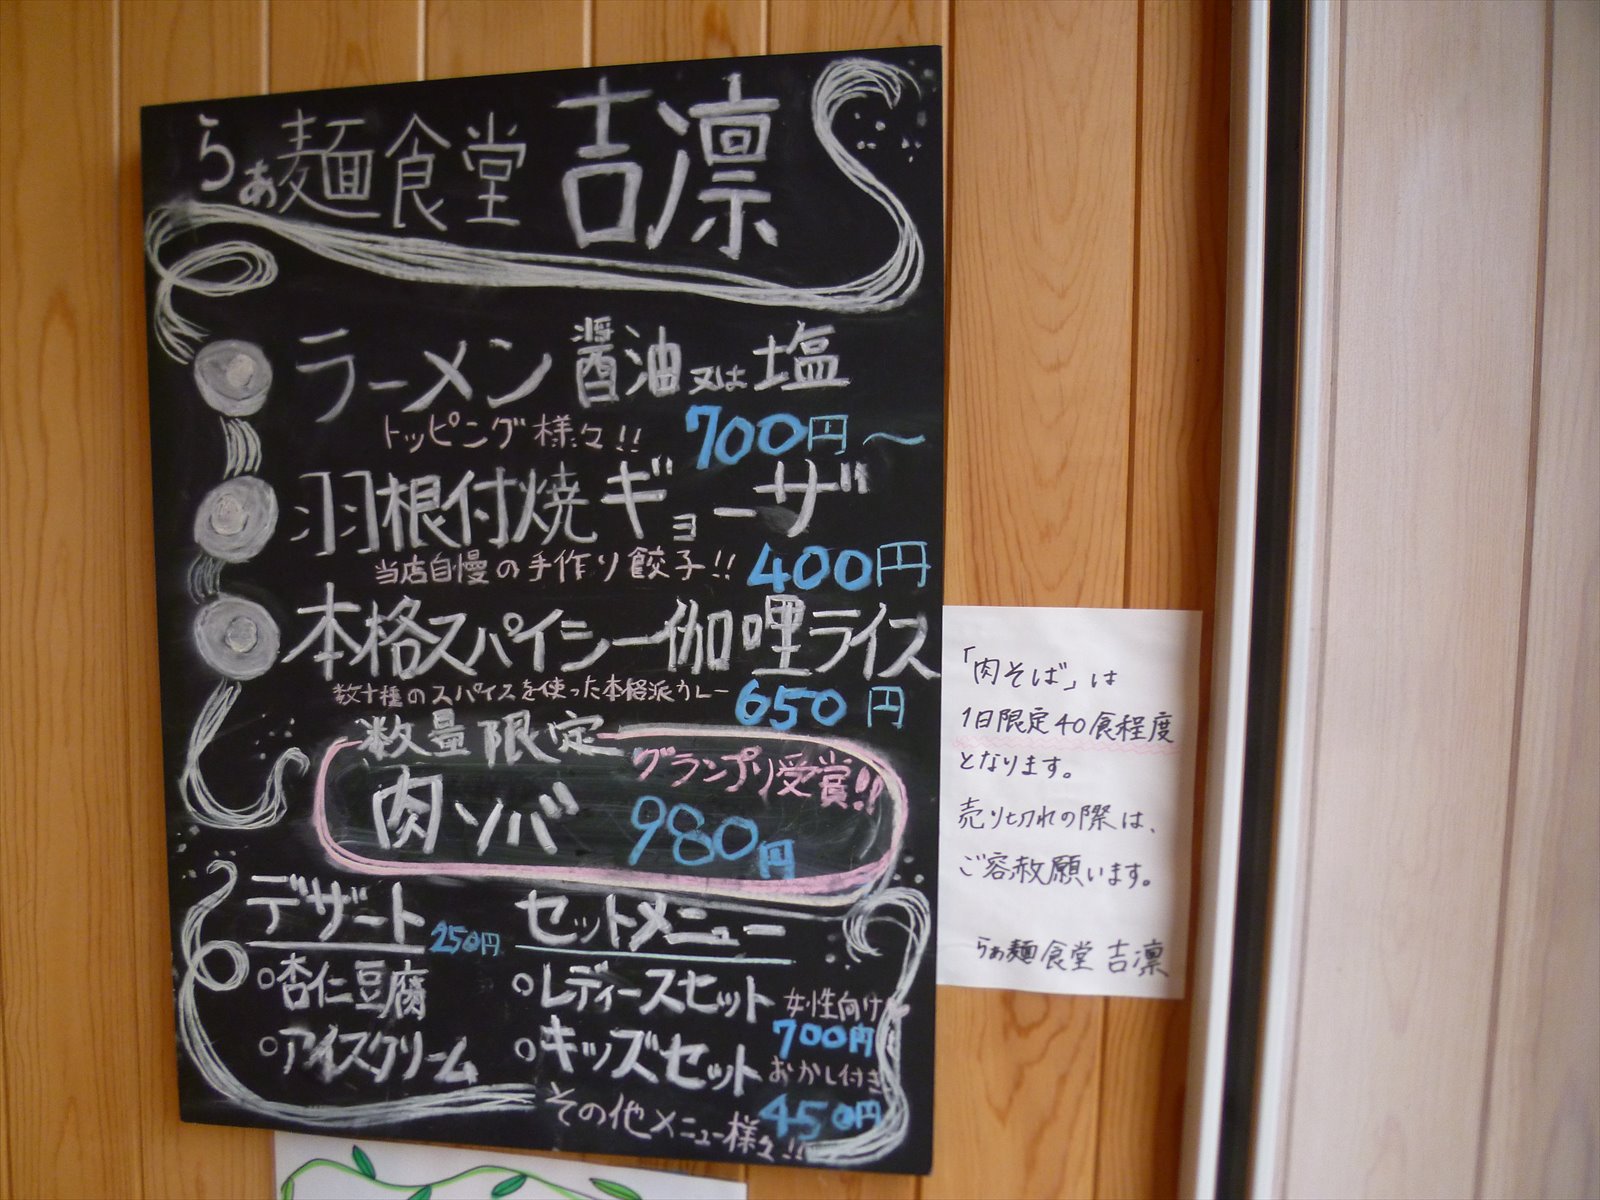 らぁ麺食堂 吉凛
ラーメン 醤油又は塩
トッピング様々!! 700円〜
羽根付焼ギョーザ
当店自慢の手作り餃子!! 400円
本格スパイシー伽哩ライス
数十種のスパイスを使った本格派カレー 650円
数量限定
グランプリ受賞!!
肉ソバ 980円
デザート 250円
○杏仁豆腐
○アイスクリーム
セットメニュー
○レディースセット 女性向け
700円
○キッズセット おかし付き
450円
その他メニュー様々!!
「肉そば」は
1日限定40食程度
となります。
売り切れの際は、
ご容赦願います。
らぁ麺食堂 吉凛